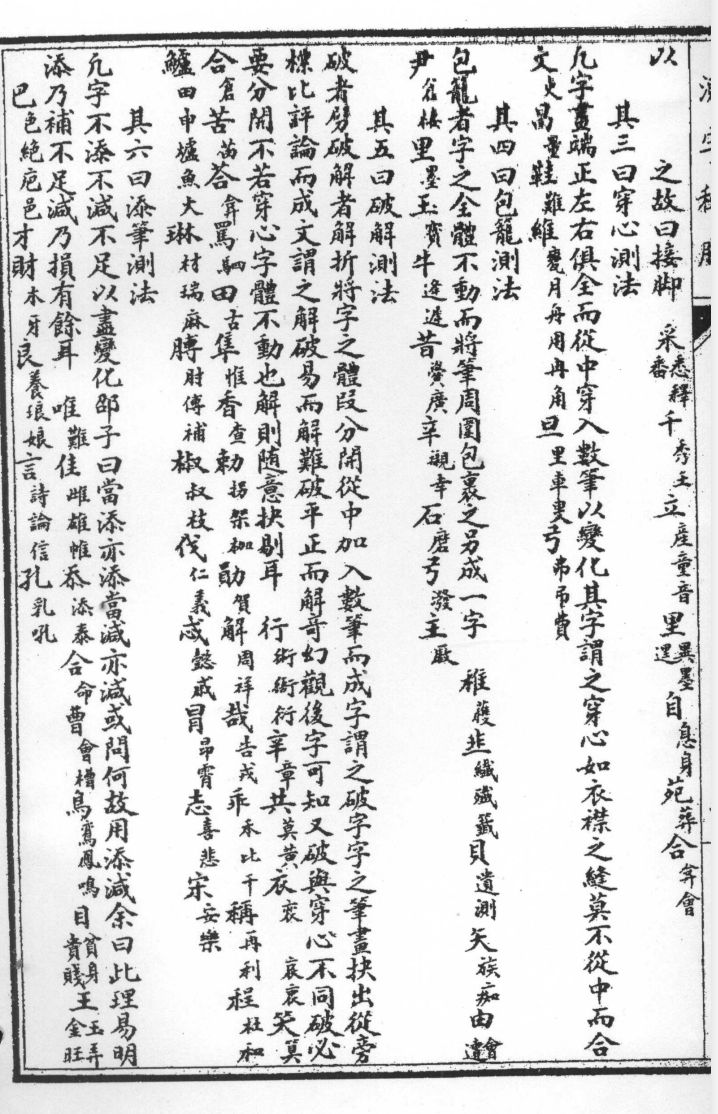 以　之故曰接脚　采悉釋番千秀壬立產童音里異墨還自息身苑葬合弇會
其三曰穿心測法
凢字畫端正左右俱全而從中穿入數筆以變化其字謂之穿心如衣襟之縫莫不從中而合
文史昌量鞋難維夔月冉用冉角旦里車叓弓弗弔費
其四曰包籠測法
包籠者字之全體不動而將筆周圍包裹之另成一字　稚䕶韭纎殱籤貝遺測矢族痴由㑹遭
尹倉棲里墨玉寶牛逢遽昔黉廣辛親幸石磨弓潑主厰
其五曰破解測法
破者劈破解者解折將字之體段分開從中加入數筆而成字謂之破字字之筆畫抉出從旁
標比評論而成文謂之解破易而解難破平正而解竒幻觀後字可知又破與穿心不同破必
要分開不若穿心字體不動也解則隨意抉剔耳　行術街衍辛章共莫黃衣衰　哀衷笑莫
合倉苦苗荅弇罵駟田古隻惟香查勅拐架枷勛賀解周祥哉吿戎乖禾比千稱再利程杜和
鱸田申爐魚大琳材瑞麻膊肘傅補椒叔枝伐仁義忒懿戚冐昻霄志喜悲宋安樂
其六曰添筆測法
凢字不添不減不足以盡變化邵子曰當添亦添當減亦減或問何故用添減余曰此理易明
添乃補不足減乃損有餘耳　唯難佳雎雄帷忝添泰合命曹會槽鳥鸞鳳鳴目貧身貴賤王玉弄金旺
巴色絶疤邑才財木牙良養琅娘言詩論信孔乳吼